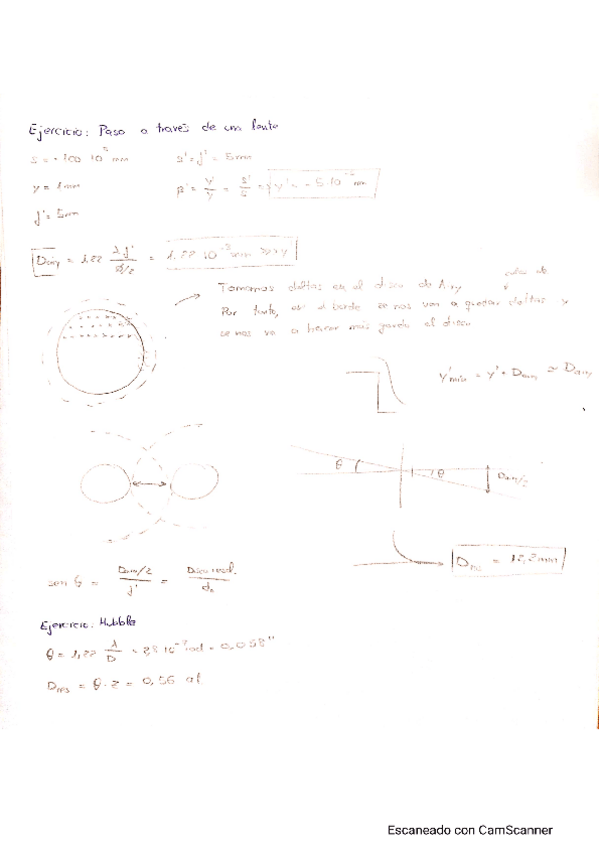 Ejercicio: Paso a través de un
s = -100 10 mm   s' = f' = 5mm
y = 1mm   β' = y'/y = s'/s => y' = -5·10 mm
f' = 5mm
= 1,22 λf'/Ø/2 = 1,22 10⁻³ mm >> y
Tomamos deltas en el disco de Airy
Por tanto, en el borde se nos van a quedar deltas y
se nos va a hacer más grande el disco
y'min = y' + Dairy ≃ Dairy
θ   θ   Dairy/2
Dres = 12,2mm
sen θ = Dairy/2 / f' =
Ejercicio: Hubble
θ = 1,22 λ/D = 2,8 10⁻⁷ rad = 0,058"
Dres = θ·z = 0,56 al
Escaneado con CamScanner